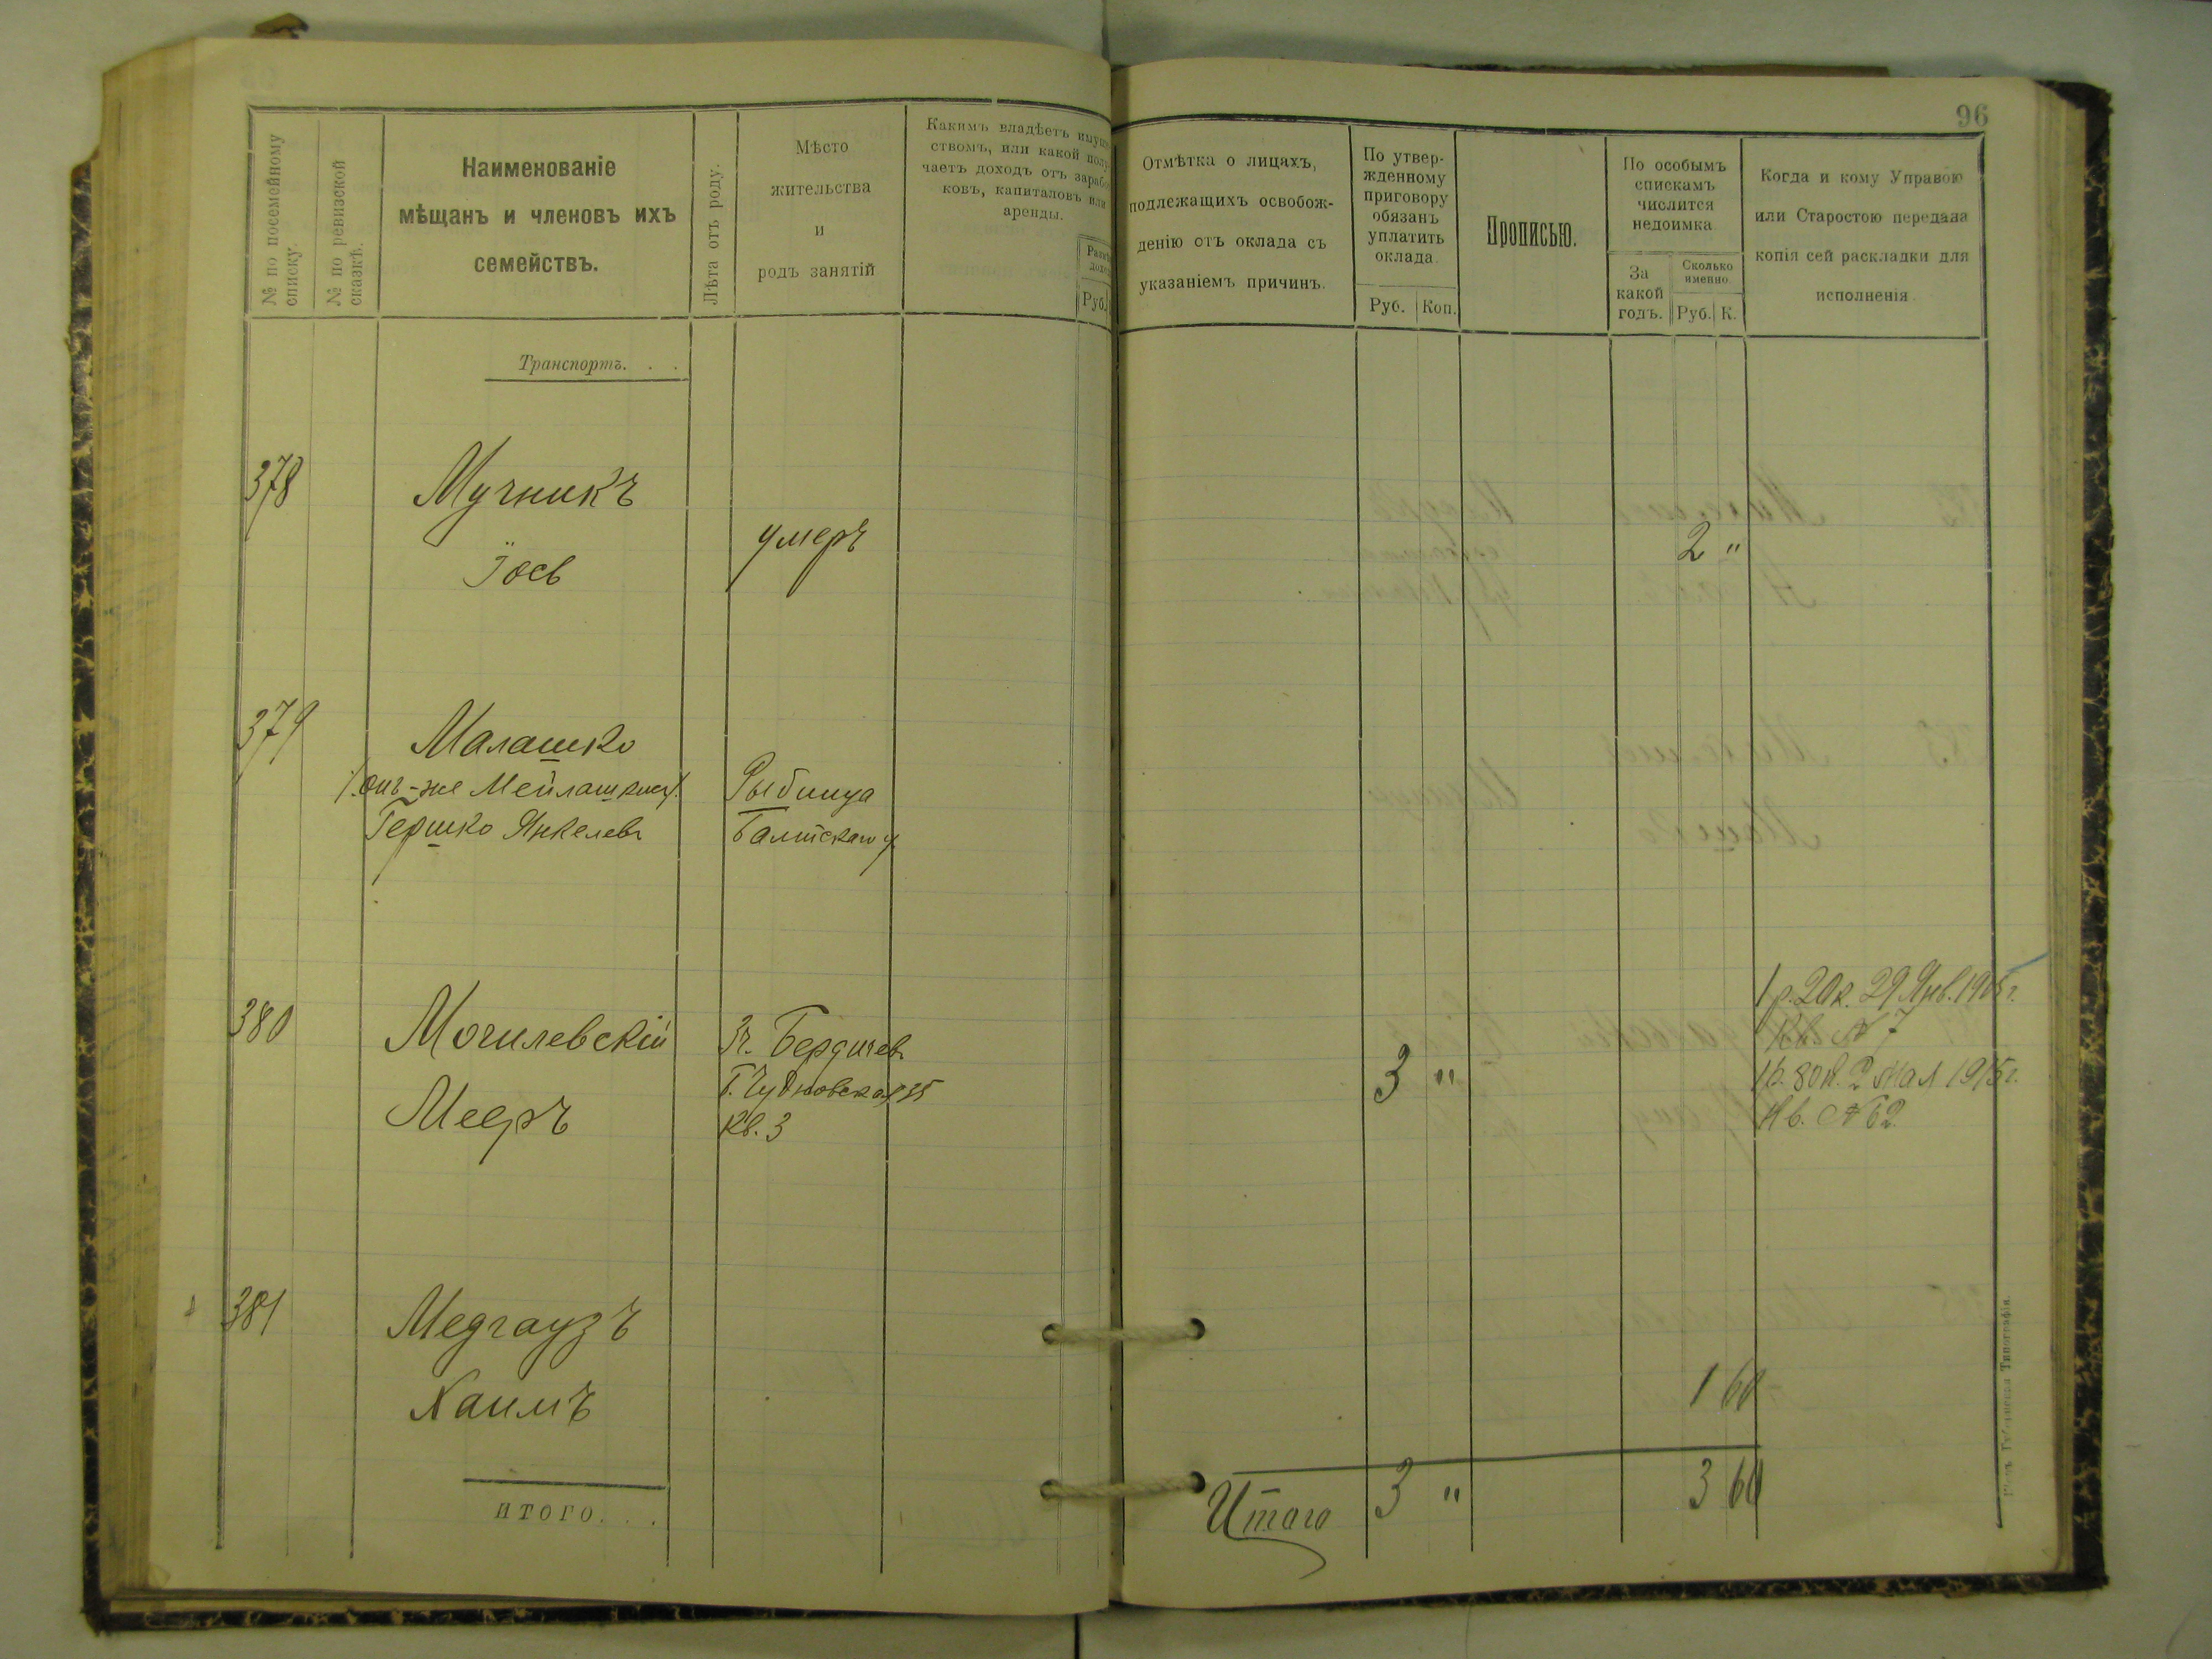 96
№ по посемейному
списку.
№ по ревизской
сказкѣ.
Наименованіе
мѣщанъ и членовъ ихъ
семействъ.
Лѣта отъ роду.
Мѣсто
жительства
и
родъ занятій
Какимъ владѣетъ
ствомъ, или какой
чаетъ доходъ отъ
ковъ, капиталовъ или
аренды.
Руб.
Отмѣтка о лицахъ,
подлежащихъ освобож-
денію отъ оклада съ
указаніемъ причинъ.
По утвер-
жденному
приговору
обязанъ
уплатить
оклада.
Руб. Коп.
Прописью.
По особымъ
спискамъ
числится
недоимка.
За
какой
годъ.
Сколько
именно.
Руб. К.
Когда и кому Управою
или Старостою передана
копія сей раскладки для
исполненія.
Транспортъ. . .
378 Мучникъ
Іось
умеръ
2 "
379 Малашко
онъ-же
Гершко Янкелевъ
Рыбница
Балтскаго у.
380 Могилевскій
Мееръ
г. Бердичевъ
Б. Чудновская 35
Кв. 3
3 "
1 р. 20 к. 29 Янв. 1915 г.
Кв. № 7
1 р. 80 к. 2 Мая 1915 г.
Кв. № 62
381 Медгаузъ
Хаимъ
1 60
ИТОГО. . .
Итого 3 " 3 60